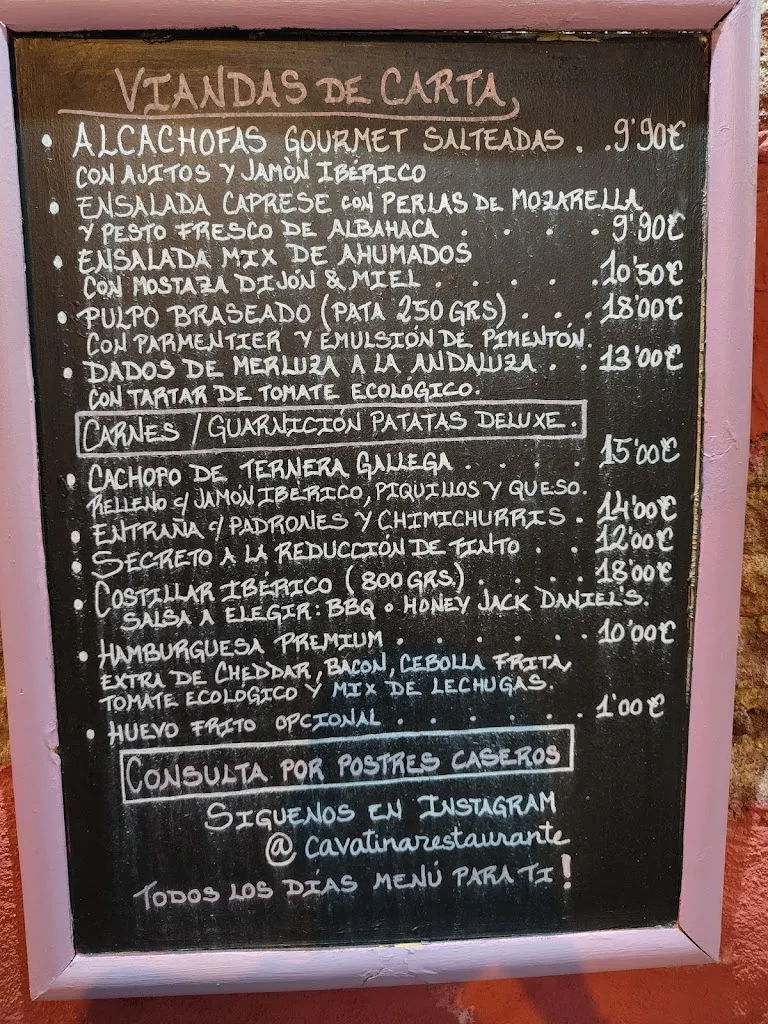 VIANDAS DE CARTA
• ALCACHOFAS GOURMET SALTEADAS . . 9'90€
CON AJITOS Y JAMÒN IBÉRICO
• ENSALADA CAPRESE CON PERLAS DE MOZARELLA
Y PESTO FRESCO DE ALBAHACA . . . . 9'90€
• ENSALADA MIX DE AHUMADOS
CON MOSTAZA DIJÓN & MIEL . . . . . 10'50€
• PULPO BRASEADO (PATA 250 GRS) . . . 18'00€
CON PARMENTIER Y EMULSIÓN DE PIMENTÓN.
• DADOS DE MERLUZA A LA ANDALUZA . . 13'00€
CON TARTAR DE TOMATE ECOLÓGICO.
CARNES / GUARNICIÓN PATATAS DELUXE.
• CACHOPO DE TERNERA GALLEGA . . . . 15'00€
RELLENO C/ JAMÓN IBERICO, PIQUILLOS Y QUESO.
• ENTRAÑA C/ PADRONES Y CHIMICHURRIS . 14'00€
• SECRETO A LA REDUCCIÓN DE TINTO . . 12'00€
• COSTILLAR IBÉRICO (800 GRS.) . . . . 18'00€
SALSA A ELEGIR: BBQ O HONEY JACK DANIEL'S.
• HAMBURGUESA PREMIUM . . . . . . 10'00€
EXTRA DE CHEDDAR, BACON, CEBOLLA FRITA,
TOMATE ECOLÓGICO Y MIX DE LECHUGAS.
• HUEVO FRITO OPCIONAL . . . . . . 1'00€
CONSULTA POR POSTRES CASEROS
SIGUENOS EN INSTAGRAM
@ cavatinarestaurante
TODOS LOS DÍAS MENÚ PARA TI!